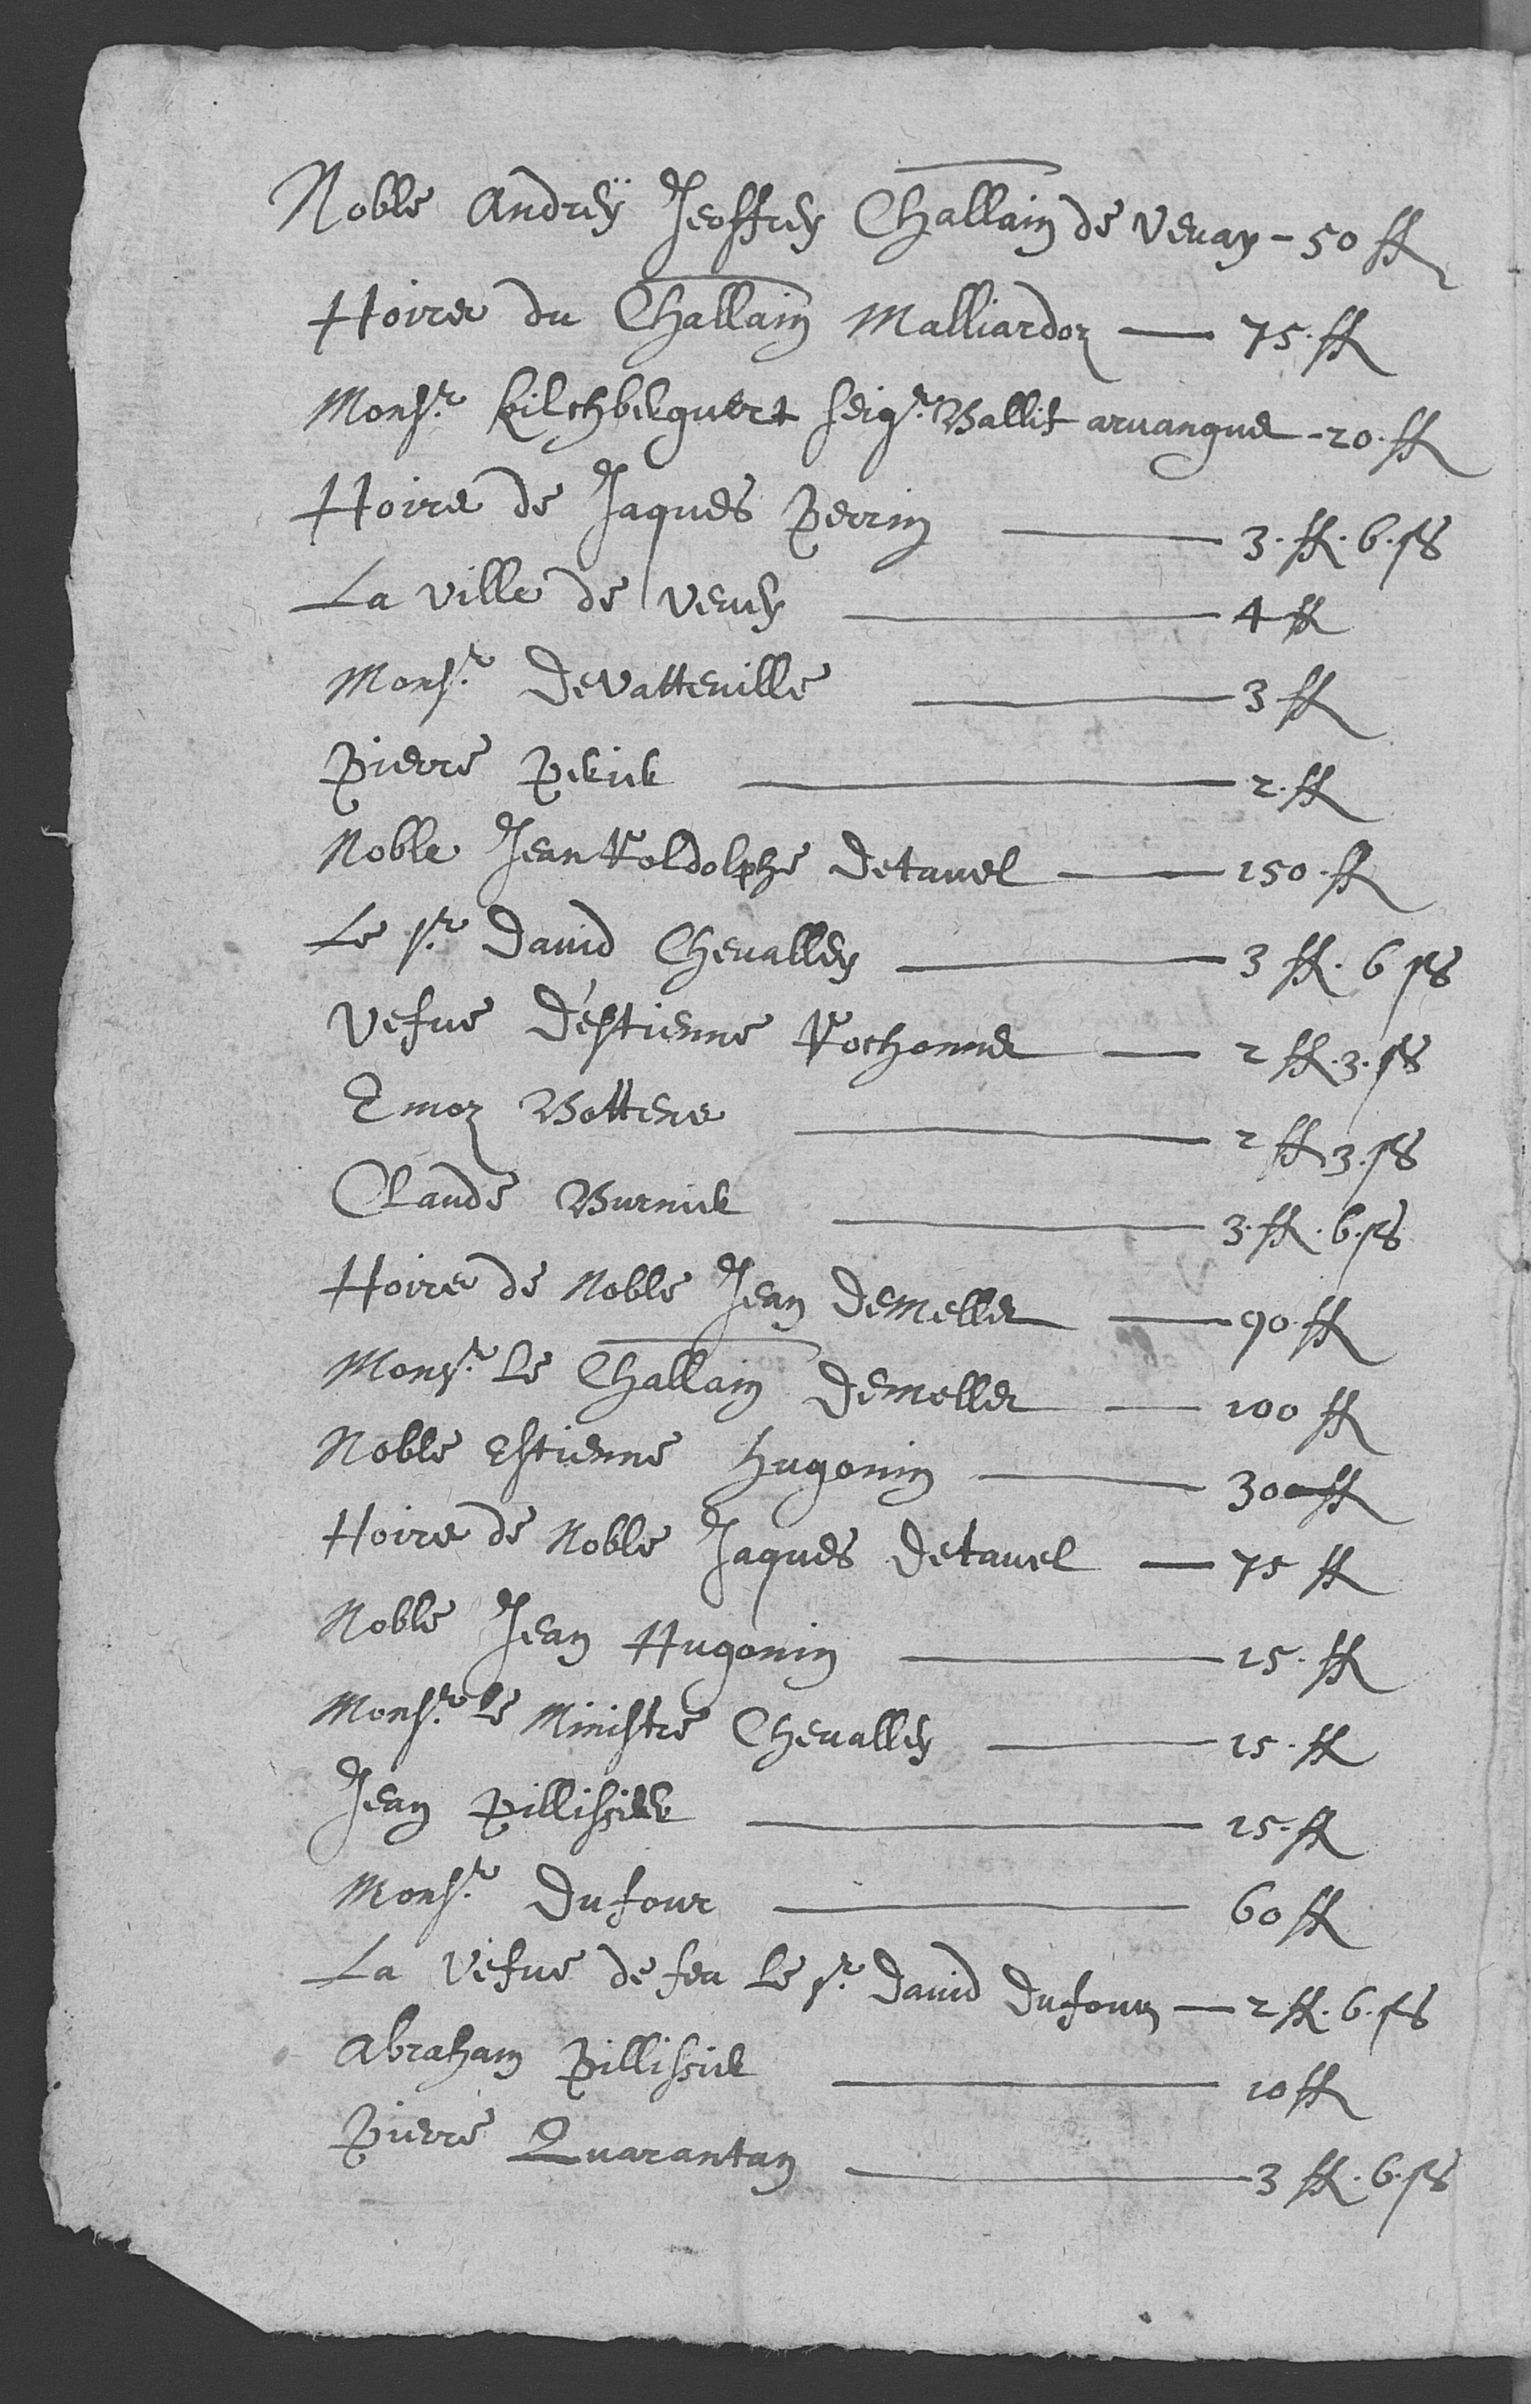 Noble Andreÿ Jeoffrey Challain de Vevay - 50 ff
Hoires du Challain Malliardoz — 75. ff
Monsr. Kilchberguert seigr. Ballif arvangue - 20. ff
Hoires de Jaques Perrin — 3. ff. 6. ss
La ville de Vevey — 4 ff
Monsr. DeVatteville — 3 ff
Pierre — 2. ff
Noble Jean Roldolphe Detavel — 150. ff
Le sr. David Chevalley — 3 ff. 6 ss
Vefve d'Estienne Rochonnet — 2 ff. 3. ss
Emoz Bottens — 2 ff 3. ss
Claude Burnier — 3. ff. 6. ss
Hoires de Noble Jean Demellet — 90. ff
Monsr. Le Challain Demellet — 100 ff
Noble Estienne Hugonin — 30 ff
Hoires de Noble Jaques Detavel — 75 ff
Noble Jean Hugonin — 15. ff
Monsr. Le Ministre Chevalley — 15. ff
Jean Pillissier — 15. ff
Monsr. Dufour — 60 ff
La Vefve de feu le sr. David Dufour — 2 ff. 6. ss
Abraham Pillissier — 10 ff
Pierre Quarantan — 3 ff. 6. ss